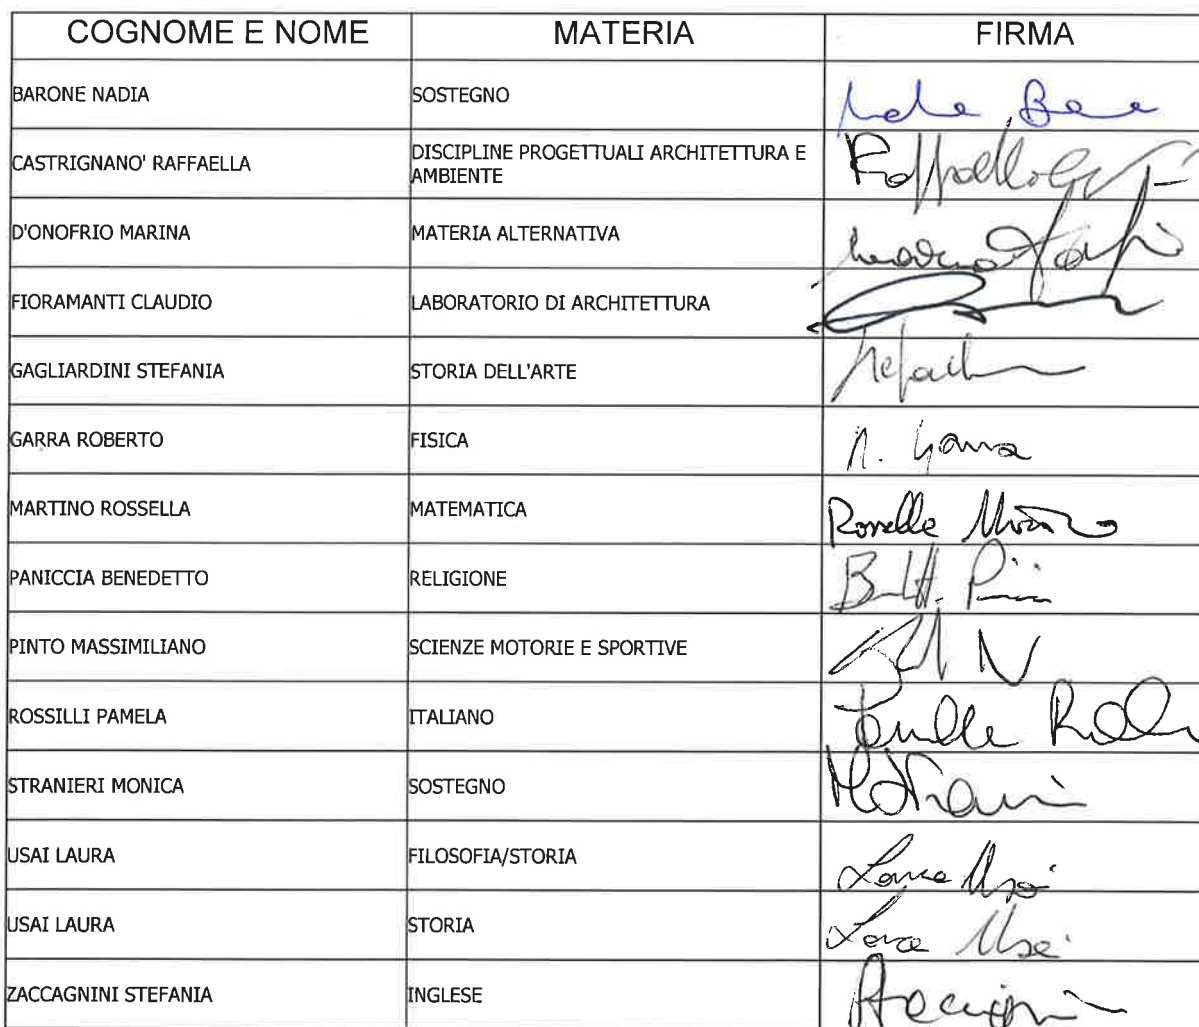 COGNOME E NOME MATERIA FIRMA
BARONE NADIA SOSTEGNO
CASTRIGNANO' RAFFAELLA DISCIPLINE PROGETTUALI ARCHITETTURA E
AMBIENTE
D'ONOFRIO MARINA MATERIA ALTERNATIVA
FIORAMANTI CLAUDIO LABORATORIO DI ARCHITETTURA
GAGLIARDINI STEFANIA STORIA DELL'ARTE
GARRA ROBERTO FISICA R. Garra
MARTINO ROSSELLA MATEMATICA Rossella
PANICCIA BENEDETTO RELIGIONE
PINTO MASSIMILIANO SCIENZE MOTORIE E SPORTIVE
ROSSILLI PAMELA ITALIANO
STRANIERI MONICA SOSTEGNO
USAI LAURA FILOSOFIA/STORIA Laura Usai
USAI LAURA STORIA Laura Usai
ZACCAGNINI STEFANIA INGLESE